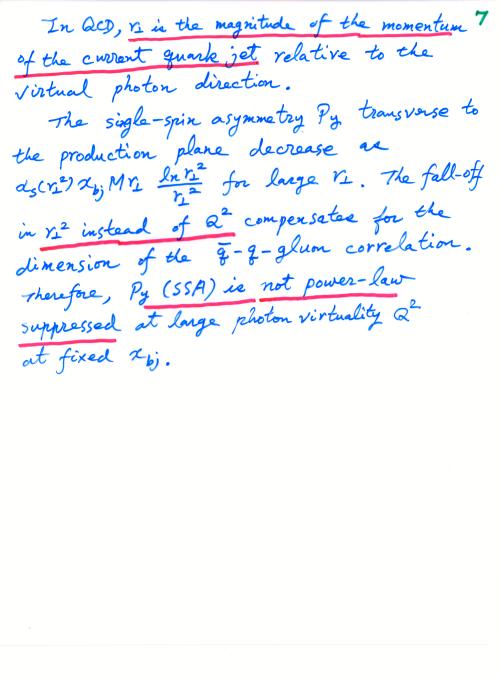 7
In QCD, r⊥ is the magnitude of the momentum
of the current quark jet relative to the
virtual photon direction.
The sigle-spin asymmetry Py transverse to
the production plane decrease as
αs(r⊥²) xbj M r⊥ ln r⊥² / r⊥² for large r⊥. The fall-off
in r⊥² instead of Q² compensates for the
dimension of the q̄-q-gluon correlation.
Therefore, Py (SSA) is not power-law
suppressed at large photon virtuality Q²
at fixed xbj.